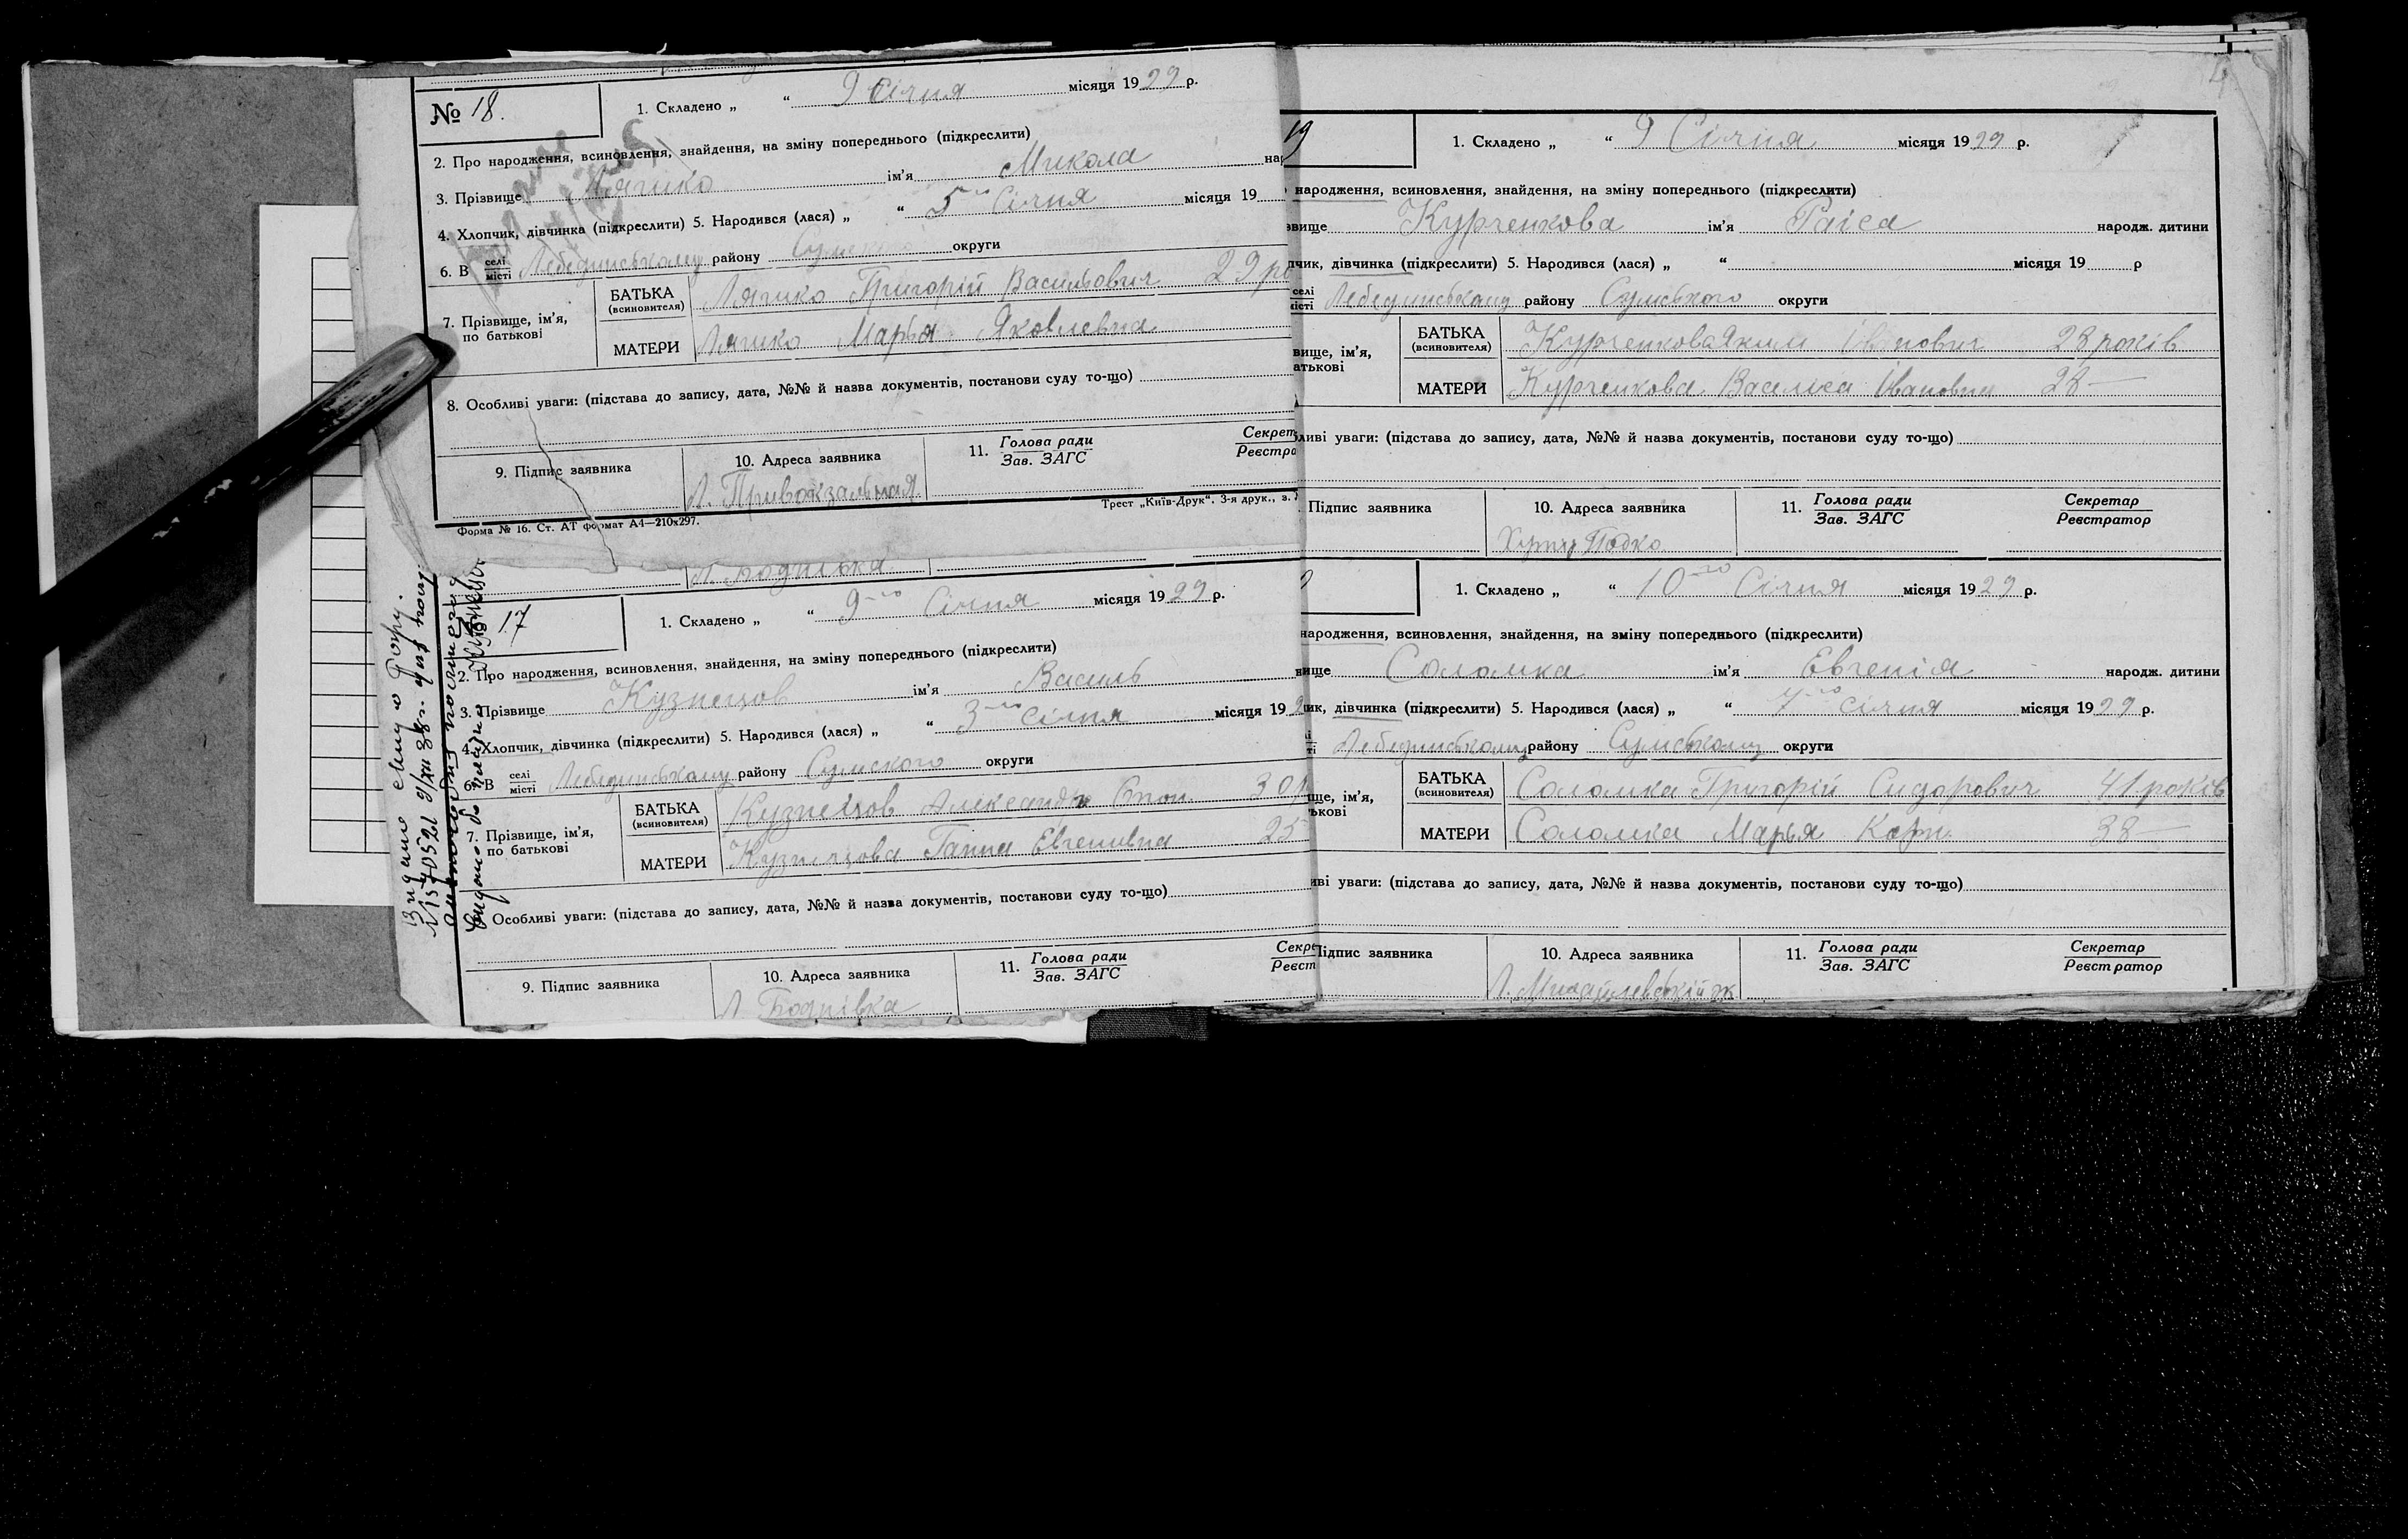 № 18.
1. Складено „ “ 9 Січня місяця 1929 р.
2. Про народження, всиновлення, знайдення, на зміну попереднього (підкреслити)
3. Прізвище Ляшко ім'я Микола
4. Хлопчик, дівчинка (підкреслити) 5. Народився (лася) „ “ 5-го Січня місяця 19
6. В селі місті Лебединському району округи
7. Прізвище, ім'я, по батькові
БАТЬКА (всиновителя) Ляшко Григорій Васильович 29
МАТЕРИ Ляшко Марья Яковлевна
8. Особливі уваги: (підстава до запису, дата, №№ й назва документів, постанови суду то-що)
9. Підпис заявника
10. Адреса заявника
11. Голова ради Зав. ЗАГС
Л. Привокзальная
Форма № 16. Ст. АТ формат А4—210х297.
Трест „Київ-Друк“. 3-я друк., з.
17
1. Складено „ “ 9-го Січня місяця 1929 р.
2. Про народження, всиновлення, знайдення, на зміну попереднього (підкреслити)
3. Прізвище Кузнецов ім'я Василь
4. Хлопчик, дівчинка (підкреслити) 5. Народився (лася) „ “ 3-го Січня місяця 192
6. В селі місті Лебединському району Сумского округи
7. Прізвище, ім'я, по батькові
БАТЬКА (всиновителя) Кузнецов Александр 30
МАТЕРИ Кузнецова Ганна Евгенивна 25
Особливі уваги: (підстава до запису, дата, №№ й назва документів, постанови суду то-що)
9. Підпис заявника
10. Адреса заявника
11. Голова ради Зав. ЗАГС
19
1. Складено „ “ 9 Січня місяця 1929 р.
народження, всиновлення, знайдення, на зміну попереднього (підкреслити)
Курченкова ім'я Раіса народж. дитини
дівчинка (підкреслити) 5. Народився (лася) „ “ місяця 19 р
Лебединському району Сумського округи
БАТЬКА (всиновителя) Курченкова Яким Іванович 28 років
МАТЕРИ Курченкова Василіса Івановна 28 —
уваги: (підстава до запису, дата, №№ й назва документів, постанови суду то-що)
Підпис заявника
10. Адреса заявника
11. Голова ради Зав. ЗАГС
Секретар Реєстратор
1. Складено „ “ 10-го Січня місяця 1929 р.
народження, всиновлення, знайдення, на зміну попереднього (підкреслити)
Соломка ім'я Евгенія народж. дитини
дівчинка (підкреслити) 5. Народився (лася) „ “ 7-го січня місяця 1929 р.
Лебединському району Сумському округи
БАТЬКА (всиновителя) Соломка Григорій Сидорович 41 років
МАТЕРИ Соломка Марья Карп. 38 —
уваги: (підстава до запису, дата, №№ й назва документів, постанови суду то-що)
Підпис заявника
10. Адреса заявника
11. Голова ради Зав. ЗАГС
Секретар Реєстратор